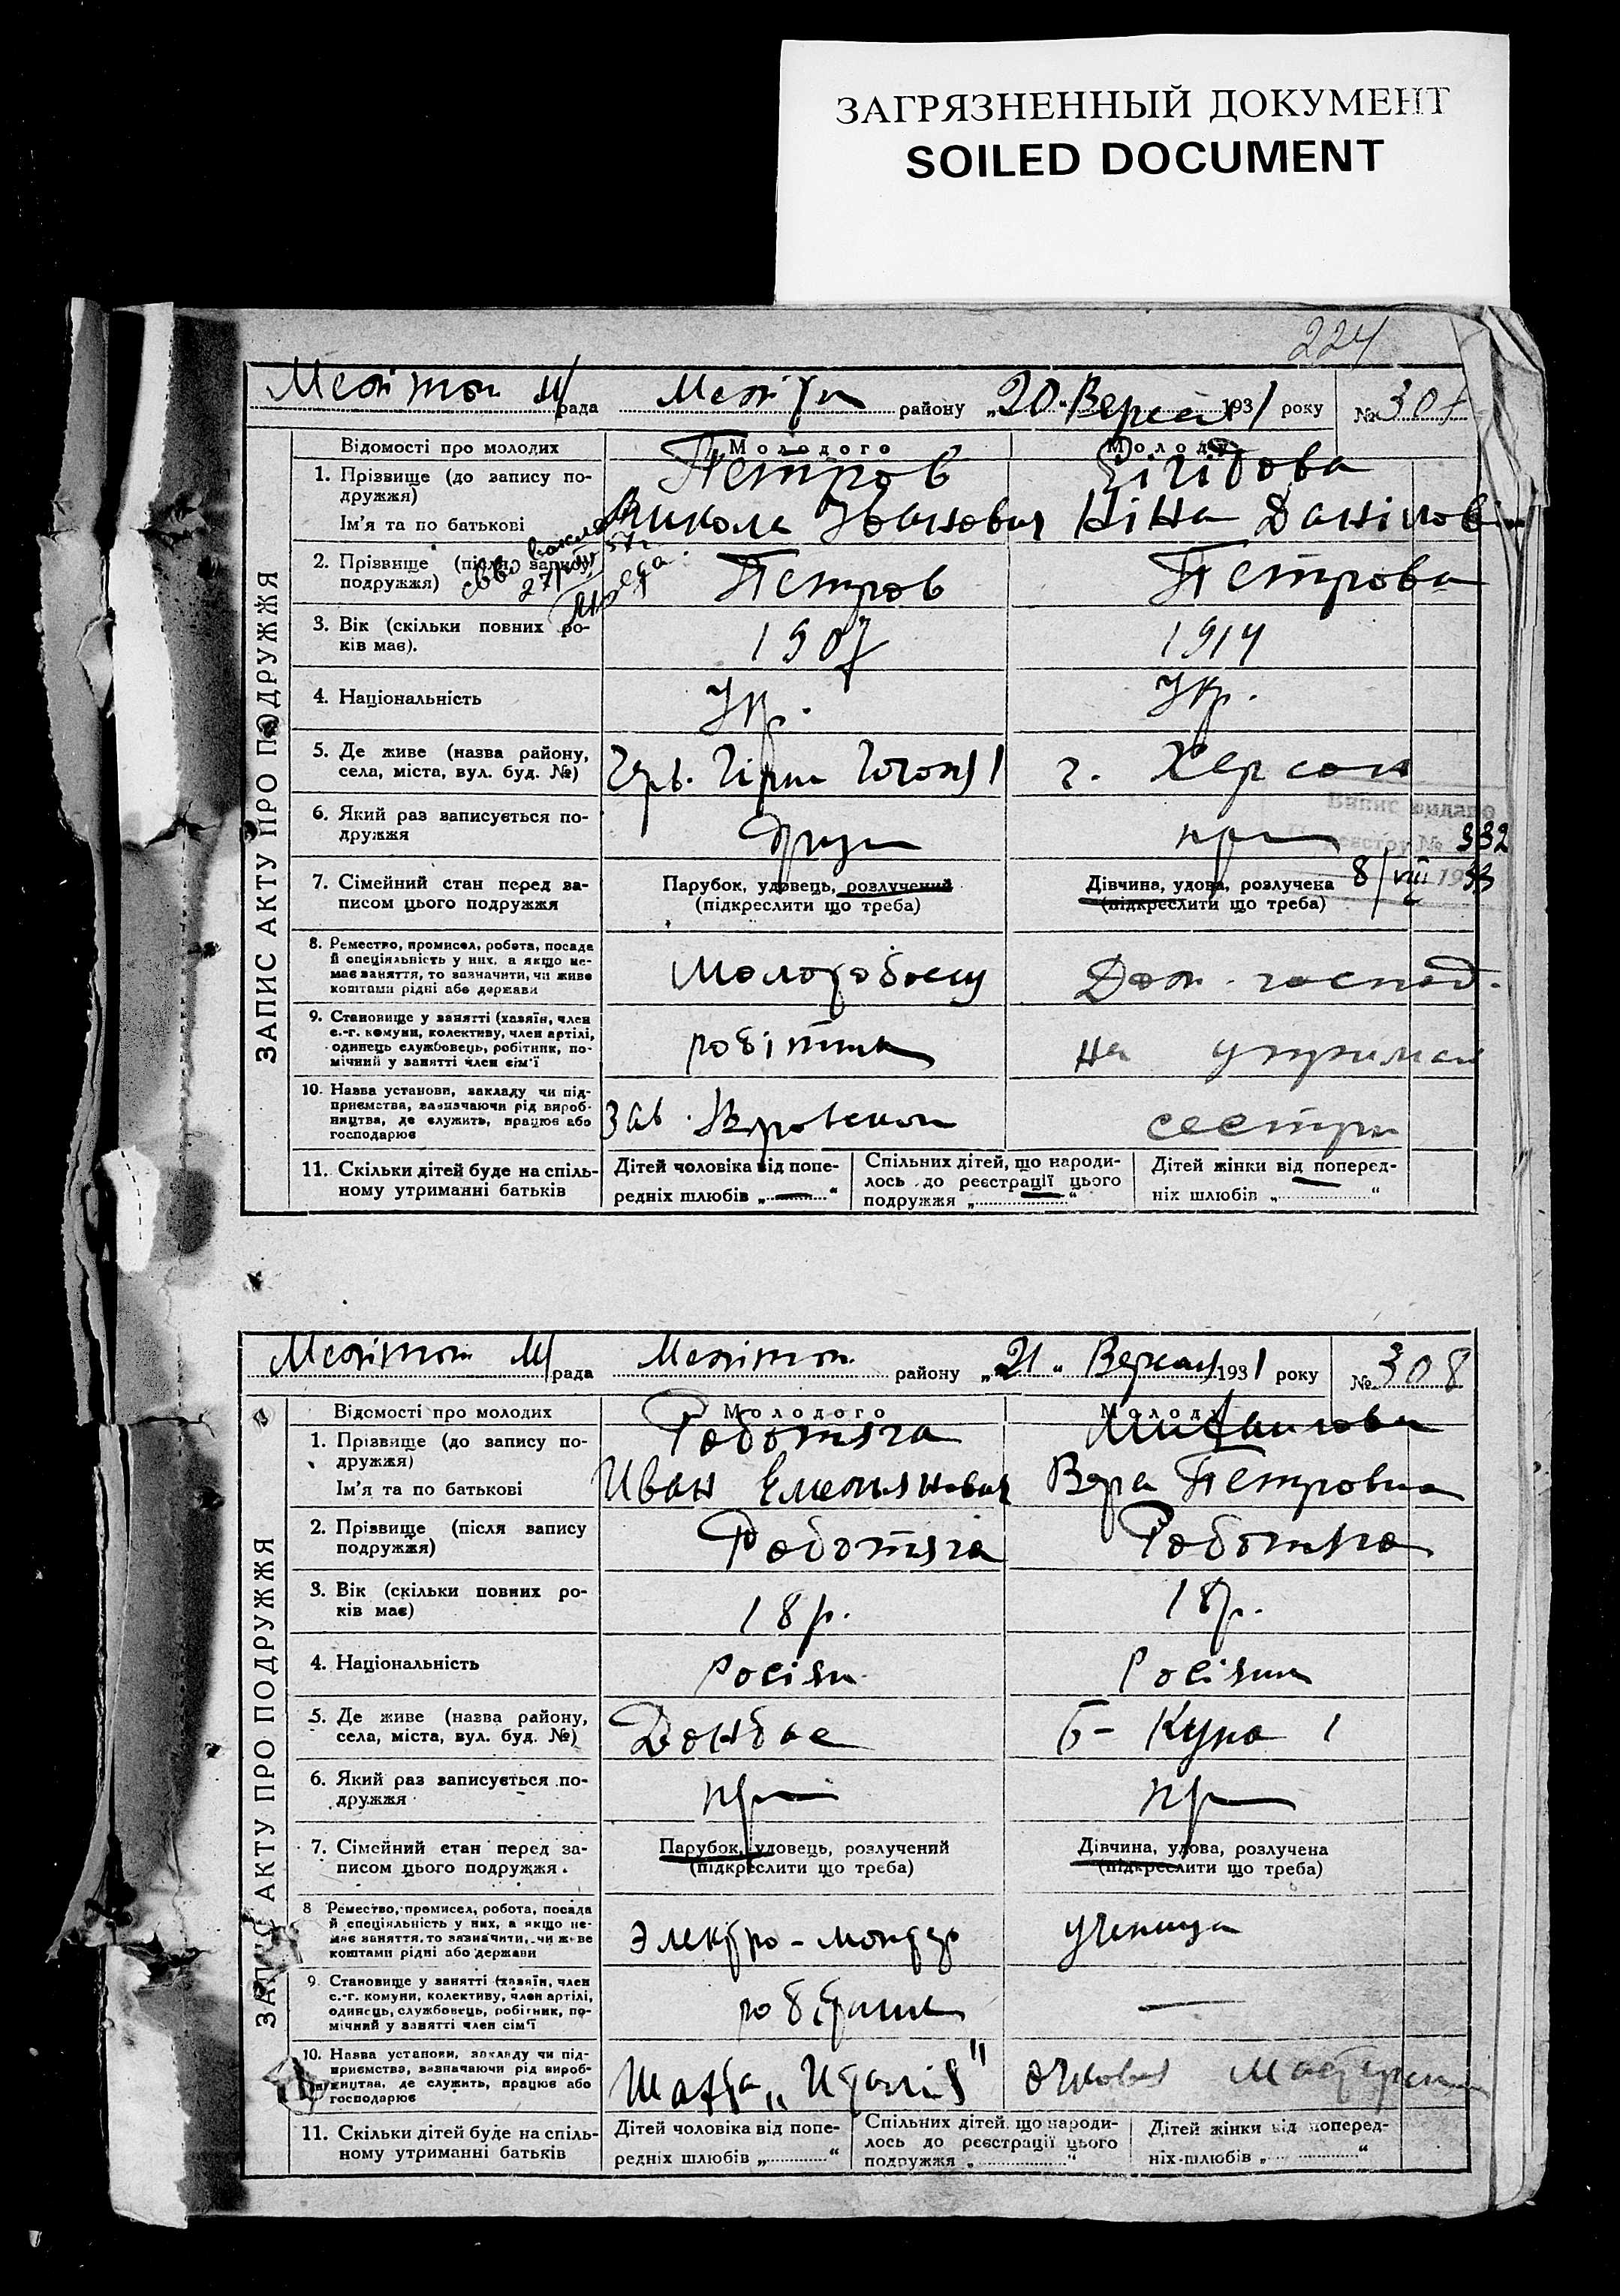 ЗАГРЯЗНЕННЫЙ ДОКУМЕНТ
SOILED DOCUMENT
224
рада району „20“ 1931 року № 307
ЗАПИС АКТУ ПРО ПОДРУЖЖЯ
Відомості про молодих Молодого Молоду
1. Прізвище (до запису по-
дружжя) Петров
Ім'я та по батькові Микола Іванович Ніна
2. Прізвище (після запису
подружжя) Петров Петрова
3. Вік (скільки повних ро-
ків має). 1907 1914
4. Національність Укр. Укр.
5. Де живе (назва району,
села, міста, вул. буд. №) г. Херсон
6. Який раз записується по-
дружжя
Випис видано
реєстру № 332
8/VIII 1953
7. Сімейний стан перед за-
писом цього подружжя
Парубок, удовець, розлучений
(підкреслити що треба)
Дівчина, удова, розлучена
(підкреслити що треба)
8. Ремество, промисел, робота, посада
й спеціяльність у них, а якщо не-
має заняття, то зазначити, чи живе
коштами рідні або держави
Молотобоец Дом. господ.
9. Становище у занятті (хазяїн, член
с.-г. комуни, колективу, член артілі,
одинець службовець, робітник, по-
мічний у занятті член сім'ї
робітник на утриман
10. Назва установи, закладу чи під-
приємства, зазначаючи рід вироб-
ництва, де служить, працює або
господарює
Зав. сестри
11. Скільки дітей буде на спіль-
ному утриманні батьків
Дітей чоловіка від попе-
редніх шлюбів „ — “
Спільних дітей, що народи-
лось до реєстрації цього
подружжя „ — “
Дітей жінки від поперед-
ніх шлюбів „ — “
рада району „21“ Вересня 1931 року № 308
ЗАПИС АКТУ ПРО ПОДРУЖЖЯ
Відомості про молодих Молодого Молоду
1. Прізвище (до запису по-
дружжя) Роботяга
Ім'я та по батькові Иван Емельянович Вера Петровна
2. Прізвище (після запису
подружжя) Роботяга Роботяга
3. Вік (скільки повних ро-
ків має) 18 р. 18 р.
4. Національність
5. Де живе (назва району,
села, міста, вул. буд. №) Донбас Б- Куна 1
6. Який раз записується по-
дружжя
7. Сімейний стан перед за-
писом цього подружжя.
Парубок, удовець, розлучений
(підкреслити що треба)
Дівчина, удова, розлучена
(підкреслити що треба)
8 Ремество, промисел, робота, посада
й спеціяльність у них, а якщо не-
має заняття, то зазначити, чи живе
коштами рідні або держави
Электро-монтер ученица
9. Становище у занятті (хазяїн, член
с.-г. комуни, колективу, член артілі,
одинець, службовець, робітник, по-
мічний у занятті член сім'ї
робітник —
10. Назва установи, закладу чи під-
приємства, зазначаючи рід вироб-
ництва, де служить, працює або
господарює
Шахта „Италія"
11. Скільки дітей буде на спіль-
ному утриманні батьків
Дітей чоловіка від попе-
редніх шлюбів „ “
Спільних дітей, що народи-
лось до реєстрації цього
подружжя „ “
Дітей жінки від поперед-
ніх шлюбів „ “